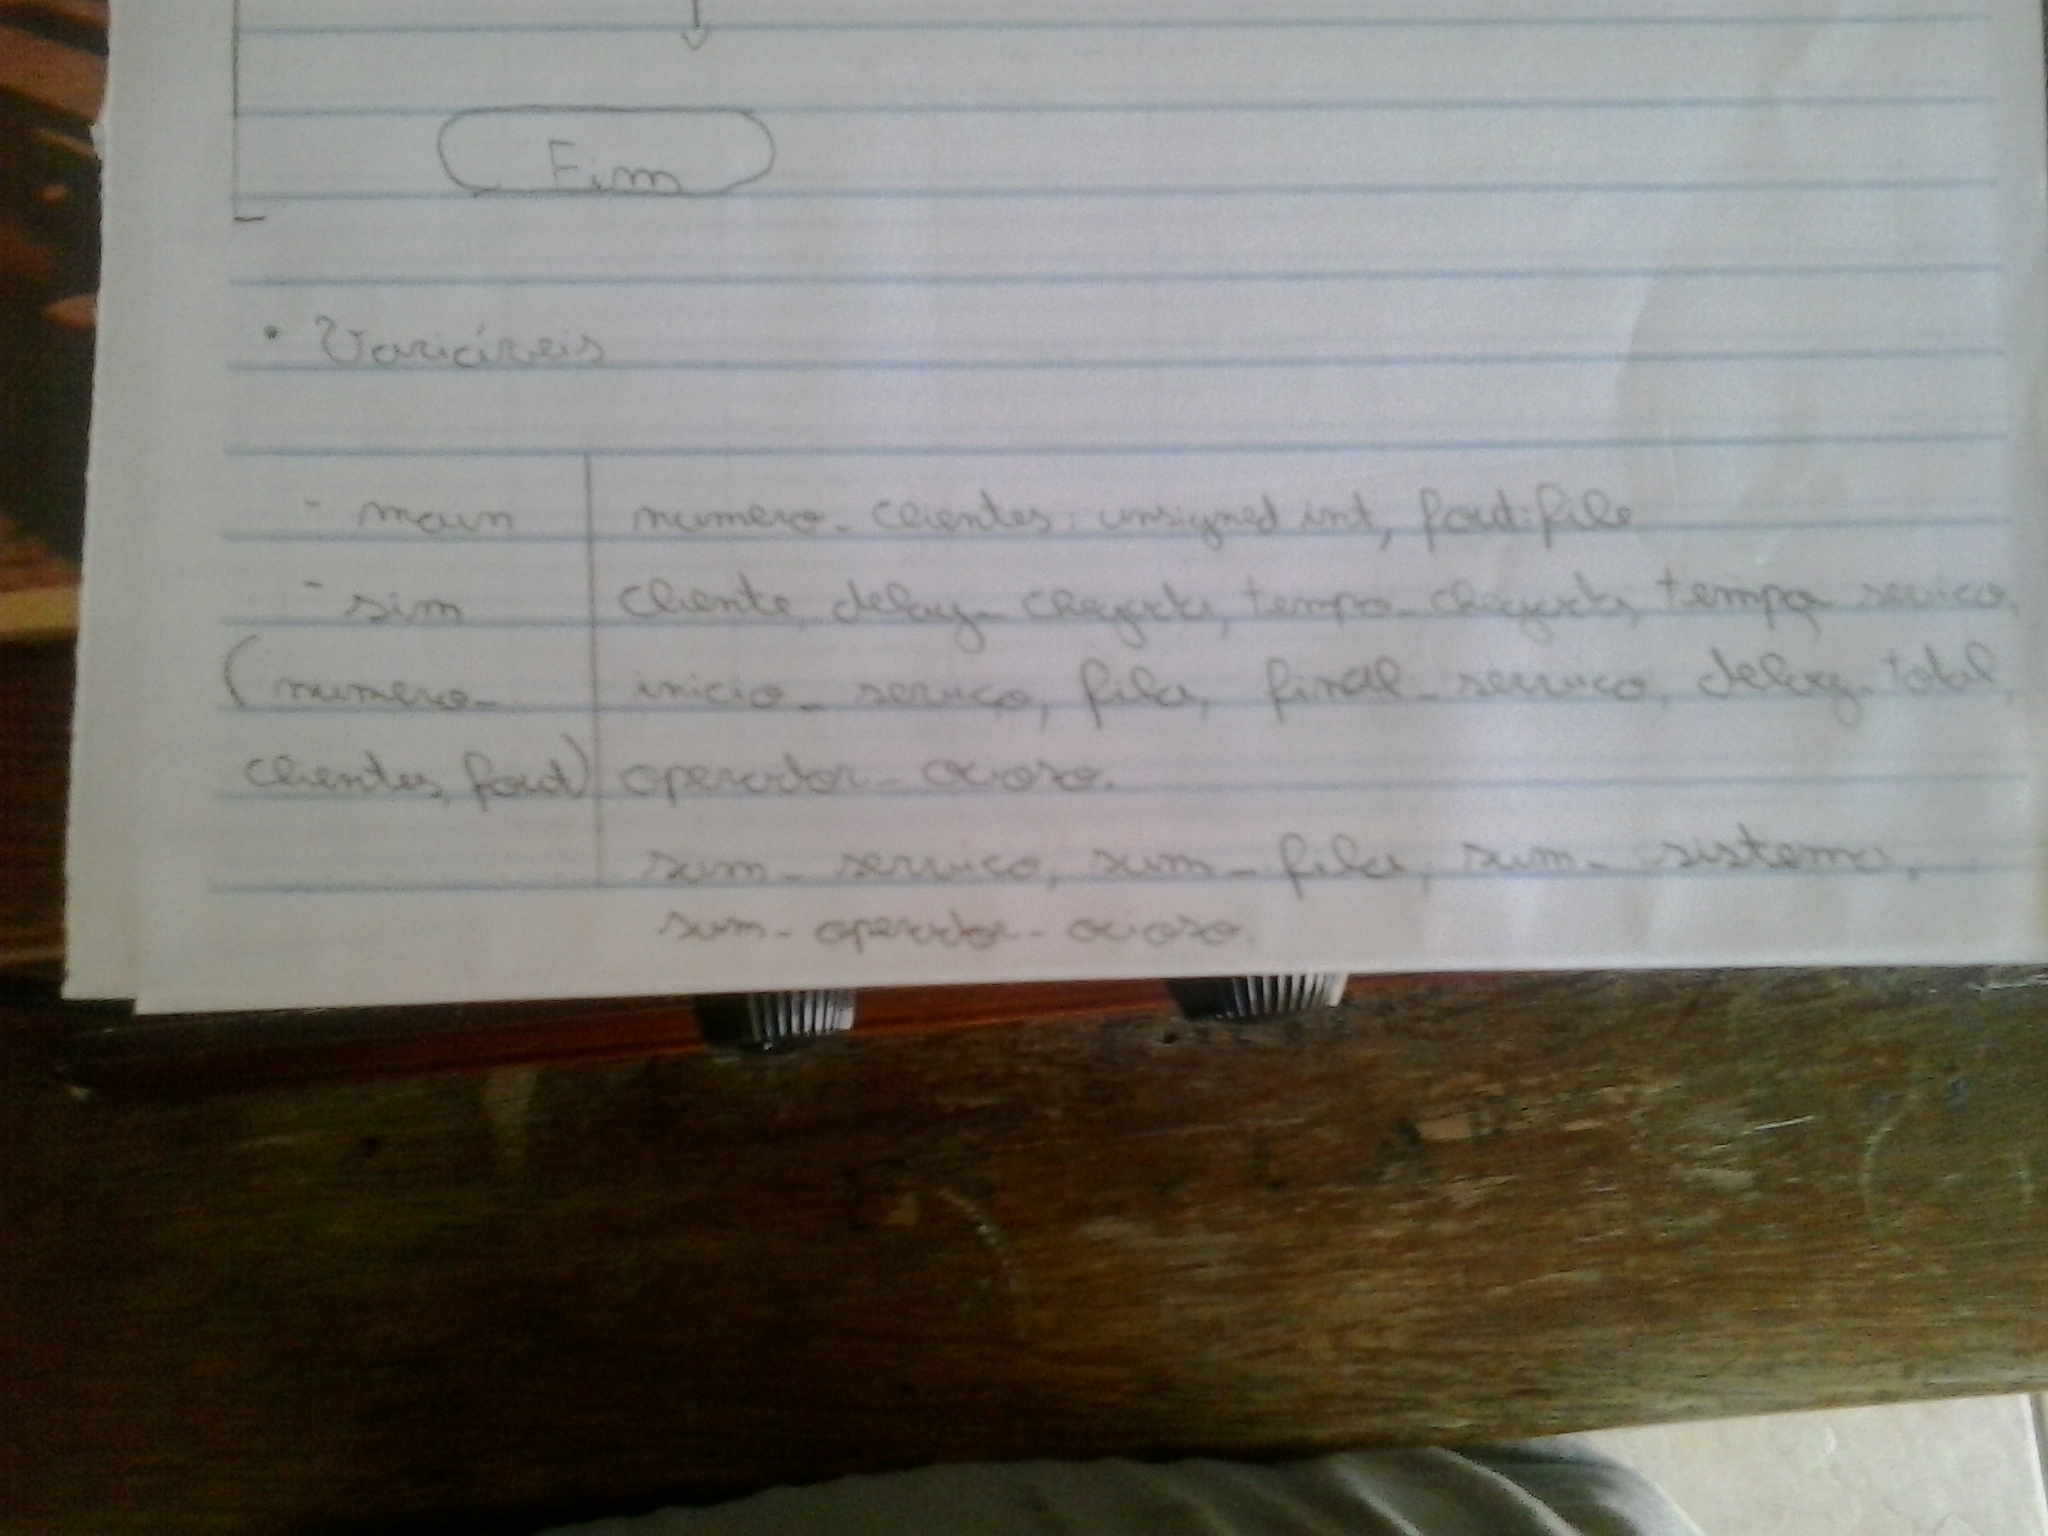 Fim
• Variáveis
- main | numero-clientes: unsigned int, fout: file
- sim | cliente, delay-chegada, tempo-chegada, tempo-servico,
(numero- | inicio-servico, fila, final-servico, delay-total,
clientes, fout) | operador-ocioso.
sum-servico, sum-fila, sum-sistema,
sum-operador-ocioso.